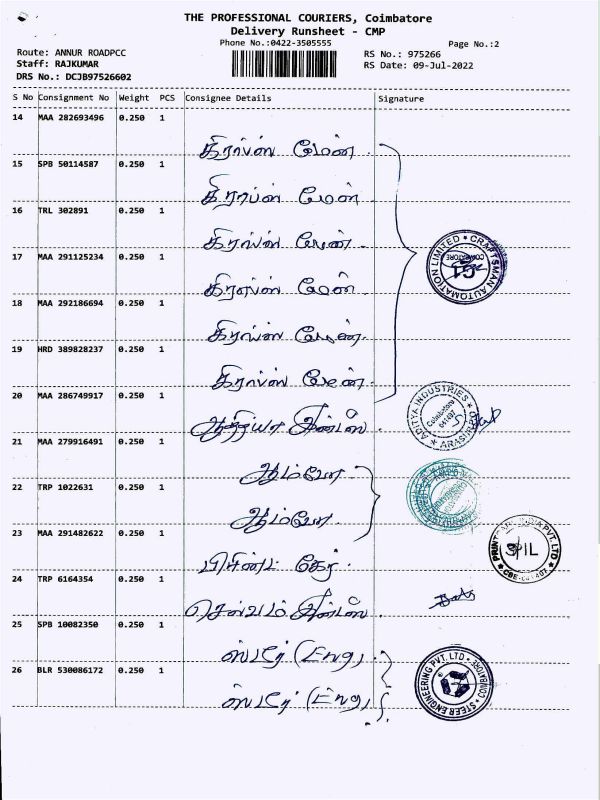 THE PROFESSIONAL COURIERS, Coimbatore
Delivery Runsheet - CMP
Phone No.:0422-3505555
Page No.:2
Route: ANNUR ROADPCC
RS No.: 975266
Staff: RAJKUMAR
RS Date: 09-Jul-2022
DRS No.: DCJB97526602
S No Consignment No Weight PCS Consignee Details Signature
14 MAA 282693496 0.250 1
கிராப்ஸ் மேன்
15 SPB 50114587 0.250 1
கிராப்ஸ் மேன்
16 TRL 302891 0.250 1
கிராப்ஸ் மேன்
17 MAA 291125234 0.250 1
கிராப்ஸ் மேன்
CRAFTSMAN AUTOMATION LIMITED COIMBATORE
18 MAA 292186694 0.250 1
கிராப்ஸ் மேன்
19 HRD 389828237 0.250 1
கிராப்ஸ் மேன்
20 MAA 286749917 0.250 1
ஆதித்யா இண்டஸ்
ADITYA INDUSTRIES Coimbatore 641407
21 MAA 279916491 0.250 1
22 TRP 1022631 0.250 1
23 MAA 291482622 0.250 1
பிரிண்ட் கேர்
SPIL
24 TRP 6164354 0.250 1
செல்வம் இண்டஸ்
25 SPB 10082350 0.250 1
ஸ்டீர் (Eng)
26 BLR 530086172 0.250 1
ஸ்டீர் (Eng)
STEER ENGINEERING PVT. LTD COIMBATORE